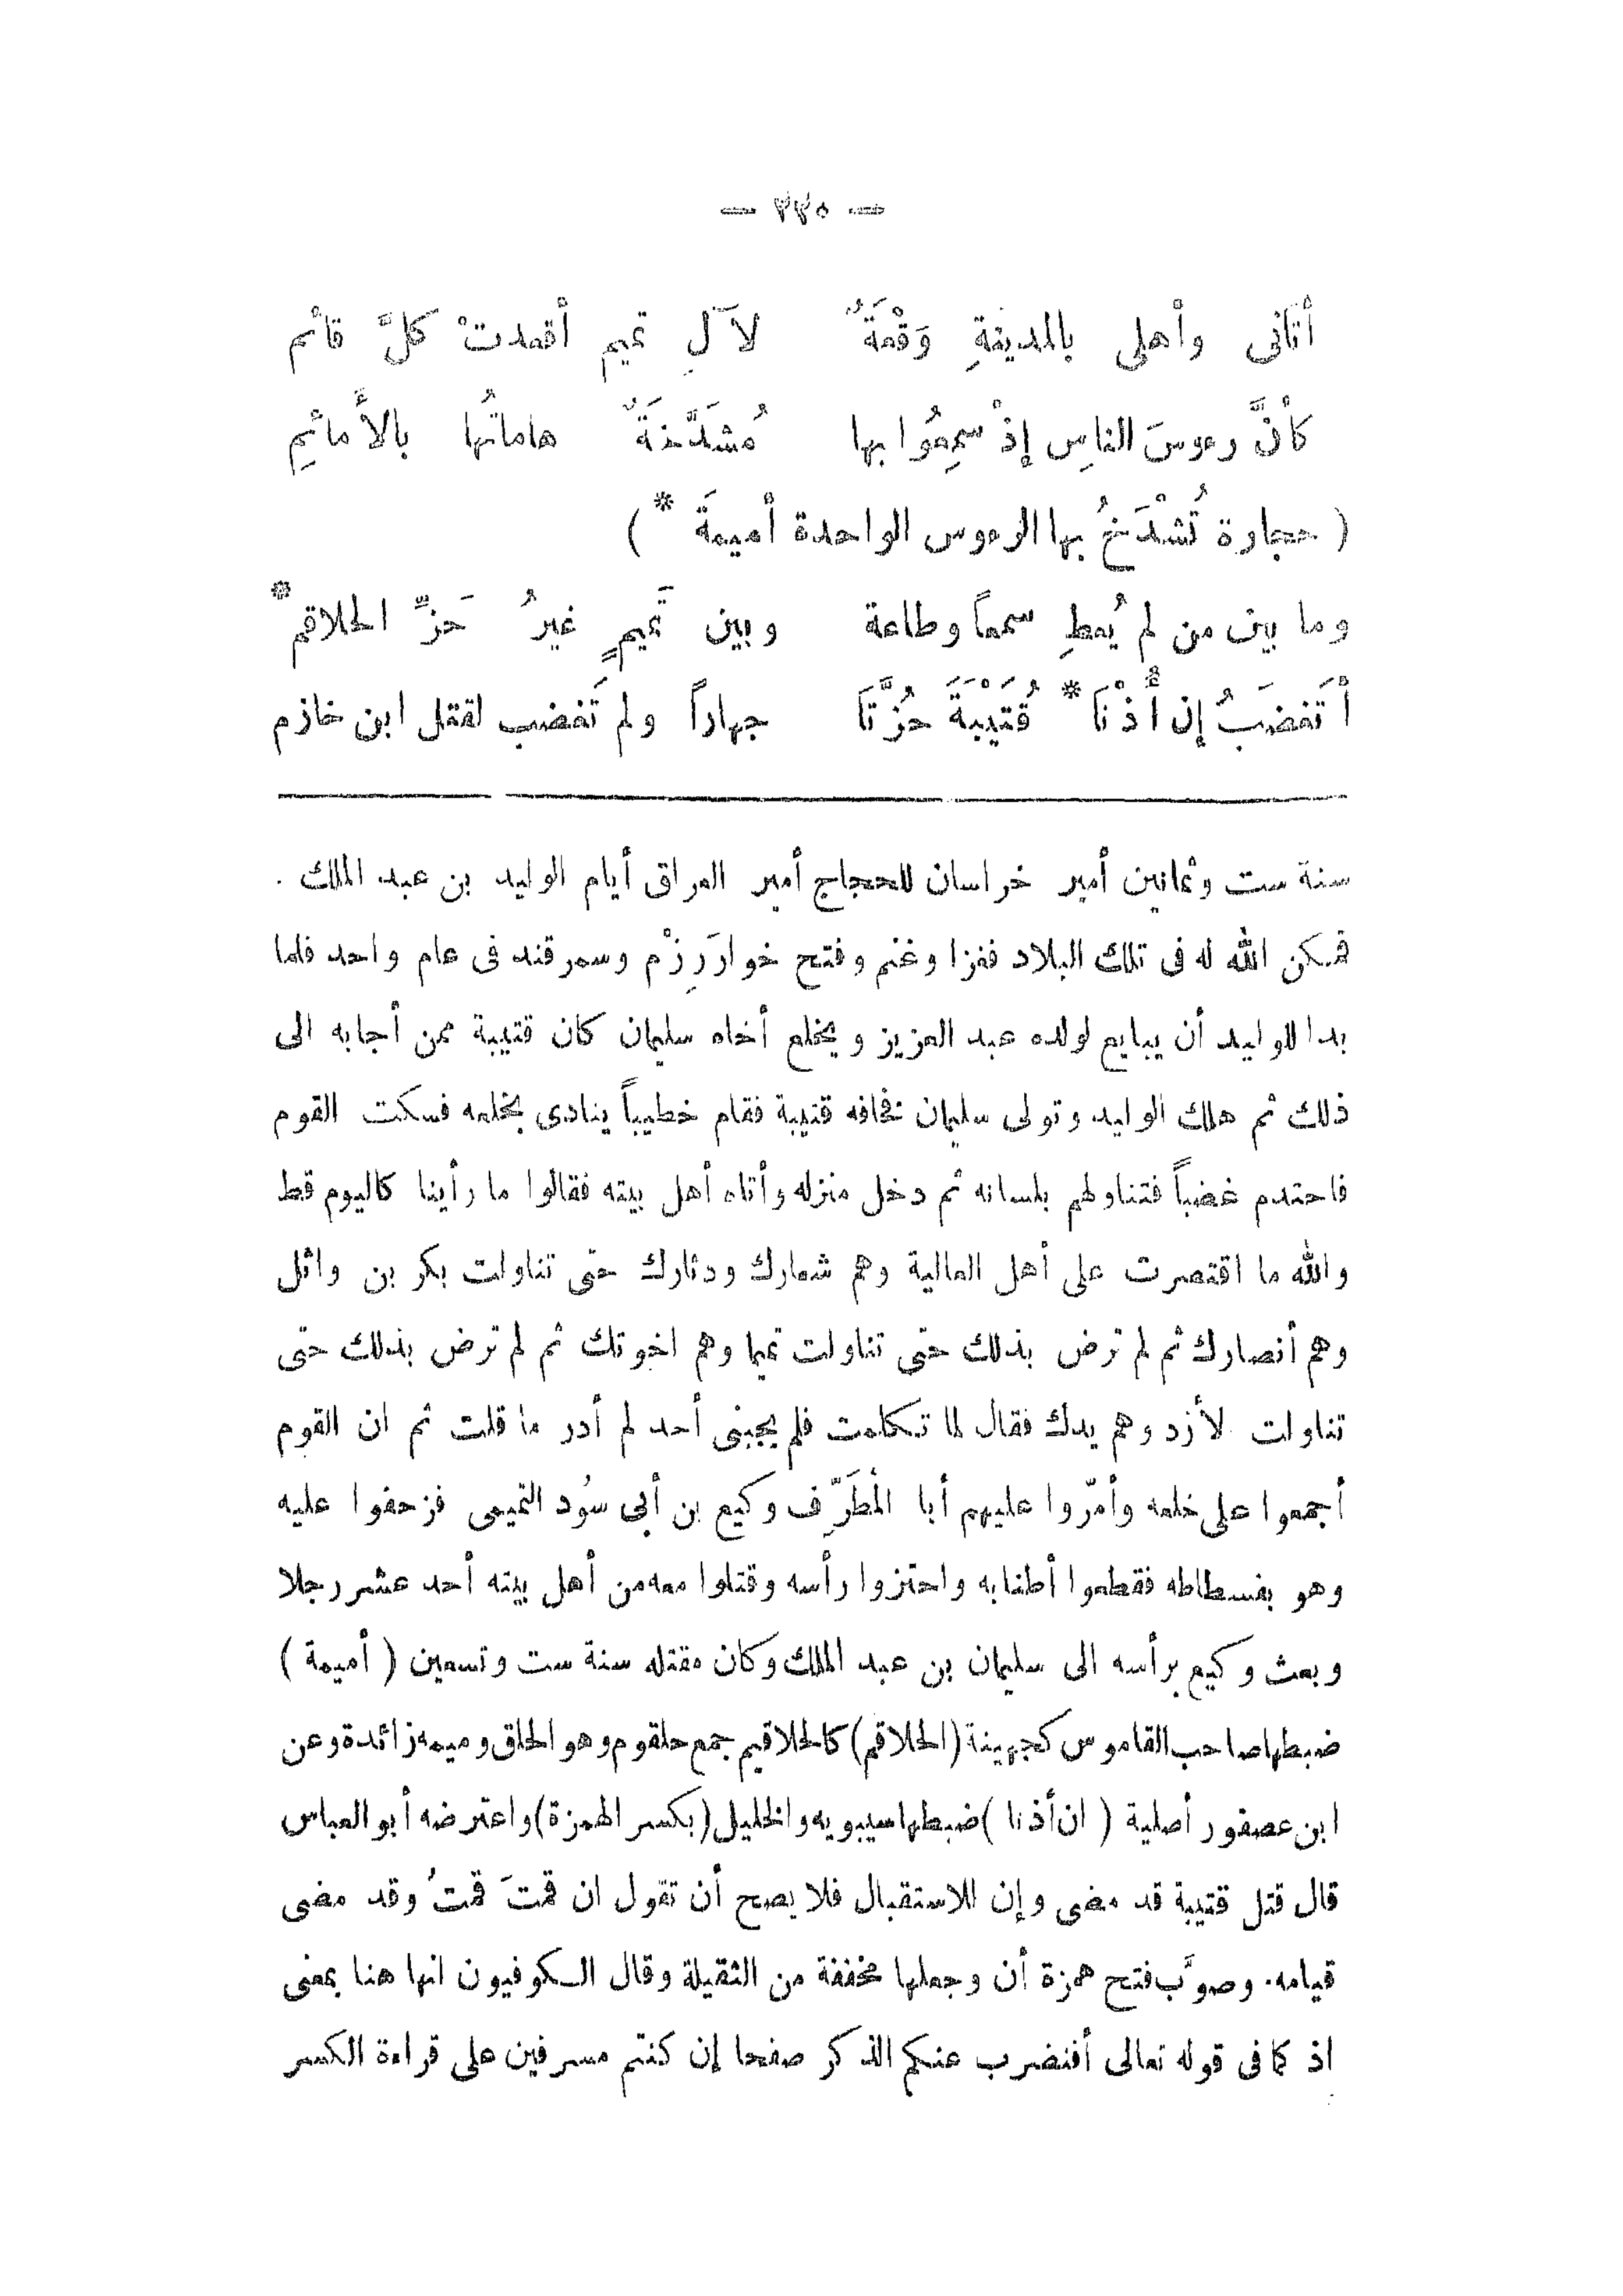 — ٢٢٥ —
أتانى وأهلى بالمدينةِ وَقْعَةٌ لآلِ تميم أقعدتْ كلَّ قائم
كأنَّ رءوسَ الناسِ إذْ سمِعُوا بها مُشَدَّخَةٌ هاماتُها بالأَمائمِ
( حجارة تُشْدَخُ بها الرءوس الواحدة أميمةَ * )
وما بين من لم يُعطِ سمعاً وطاعة وبين تَميمٍ غيرُ حَزِّ الحلاقم *
أتَغضَبُ إن أُذْنَا * قُتَيْبَةَ حُزَّتَا جهاراً ولم تَغضب لقتل ابن خازم
سنة ست وثمانين أمير خراسان للحجاج أمير العراق أيام الوليد بن عبد الملك .
فمكن الله له فى تلك البلاد فغزا وغنم وفتح خوارَرِزْم وسمرقند فى عام واحد فلما
بدا للوليد أن يبايع لولده عبد العزيز ويخلع أخاه سليمان كان قتيبة ممن أجابه الى
ذلك ثم هلك الوليد وتولى سليمان فخافه قتيبة فقام خطيباً ينادى بخلعه فسكت القوم
فاحتدم غضباً فتناولهم بلسانه ثم دخل منزله وأتاه أهل بيته فقالوا ما رأينا كاليوم قط
والله ما اقتصرت على أهل العالية وهم شعارك ودثارك حتى تناولت بكر بن وائل
وهم أنصارك ثم لم ترض بذلك حتى تناولت تميما وهم اخوتك ثم لم ترض بذلك حتى
تناولت لأزد وهم يدك فقال لما تكلمت فلم يجبنى أحد لم أدر ما قلت ثم ان القوم
أجمعوا على خلعه وأمّروا عليهم أبا المُطَرِّف وكيع بن أبى سُود التميمى فزحفوا عليه
وهو بفسطاطه فقطعوا أطنابه واحتزوا رأسه وقتلوا معه من أهل بيته أحد عشر رجلا
وبعث وكيع برأسه الى سليمان بن عبد الملك وكان مقتله سنة ست وتسعين ( أميمة )
ضبطها صاحب القاموس كجهينة (الحلاقم) كالحلاقيم جمع حلقوم وهو الحلق وميمه زائدة وعن
ابن عصفور أصلية ( ان أذنا ) ضبطها سيبويه والخليل (بكسر الهمزة) واعترضه أبو العباس
قال قتل قتيبة قد مضى وإن للاستقبال فلا يصح أن تقول ان قمتَ قمتُ وقد مضى
قيامه. وصوَّب فتح همزة أن وجعلها مخففة من الثقيلة وقال الكوفيون انها هنا بمعنى
اذ كما فى قوله تعالى أفنضرب عنكم الذكر صفحا إن كنتم مسرفين على قراءة الكسر